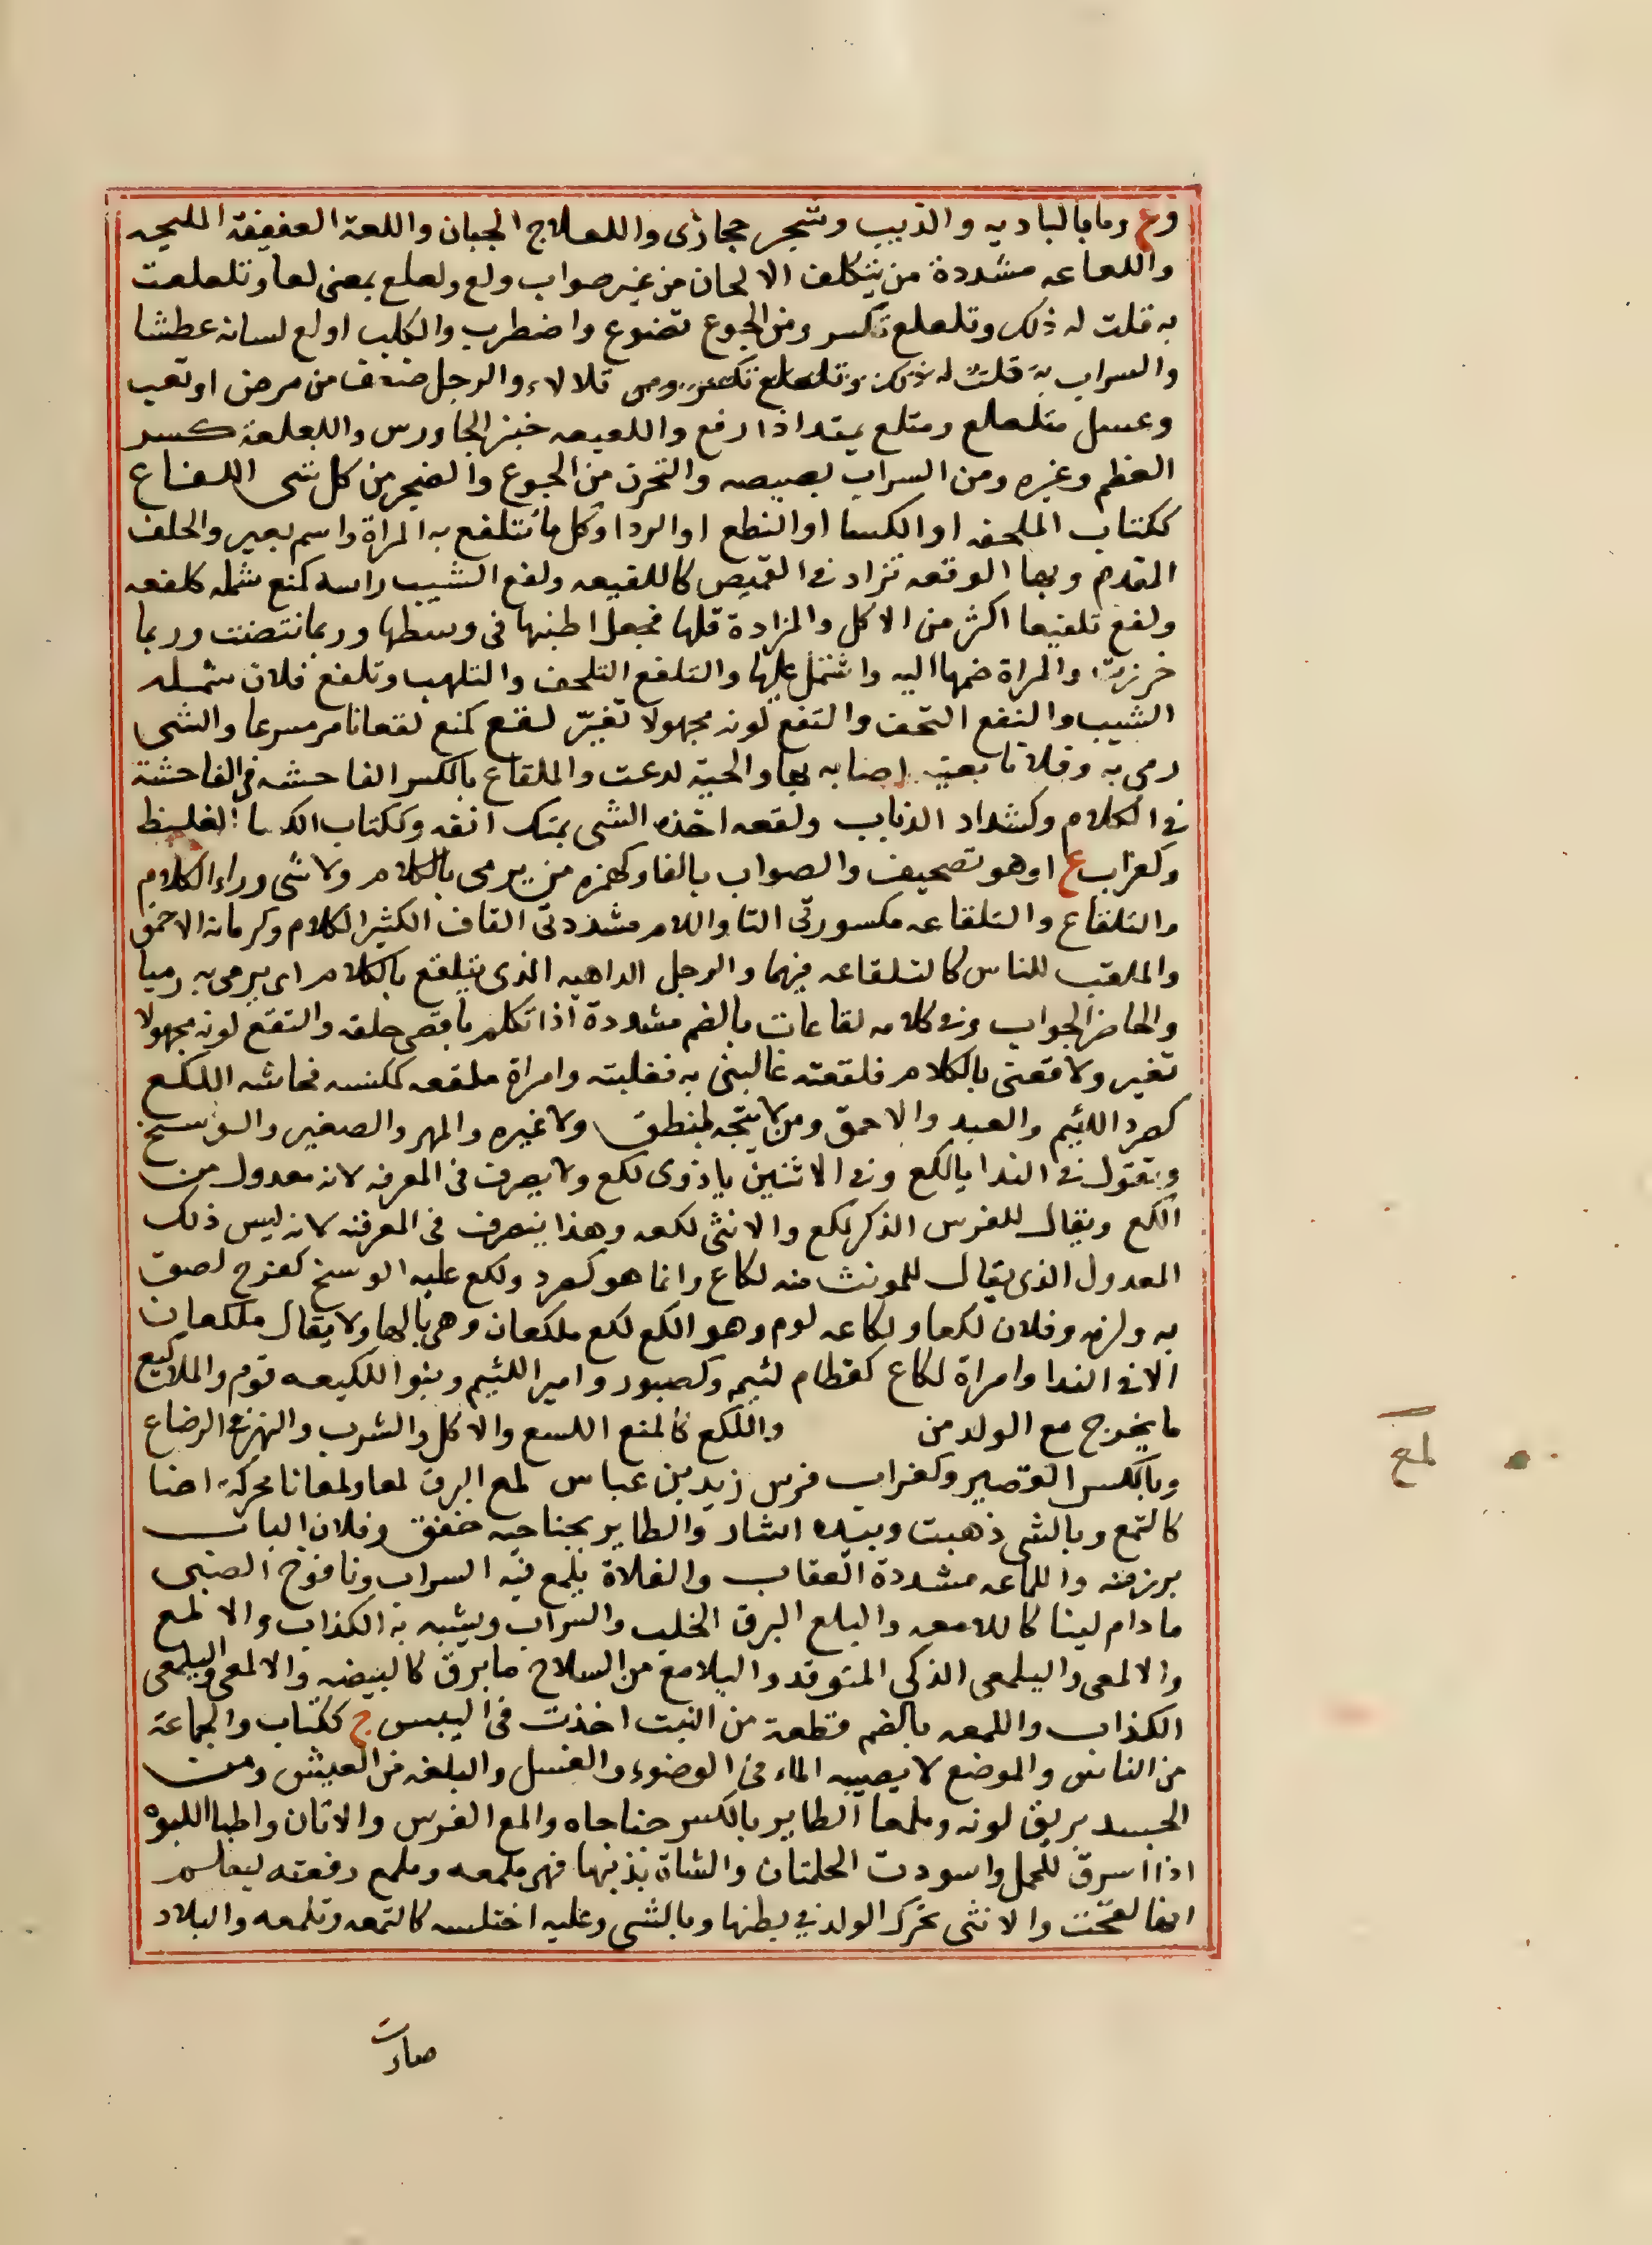 وع وما بالباديه والذيب وشجر حجازى واللعلاج الجبان واللعة العفيفة المليحه
واللعاعه مشددة من يتكلف الالحان من غير صواب ولع ولعلع بمعنى لعا وتلعلعت
به قلت له ذلك وتلعلع تكسر ومن الجوع تضوع واضطرب والكلب اولع لسانه عطشا
والسراب به قلت له ذلك وتلعلع تكسر ومن تلالاء والرجل ضعف من مرض او تعب
وعسل متلعلع ومتلع يمتد اذا رفع واللعيعه خبز الجاورس واللعلعة كسر
العظم وغيره ومن السراب بصيصه والتخرن من الجوع والضجر من كل شى اللفاع
ككتاب الملحفه او الكسا او النطع او الردا وكل ما تتلفع به المراة واسم بعير والخلف
المقدم وبها الوقعه تزاد فى القميص كاللفيعه ولفع الشيب راسه كمنع شمله كلفعه
ولفع تلفيعا اكثر من الاكل والمزادة قلبها فجعل اطنبها فى وسطها وربما نتضنت وربما
خرزت والمراة ضمها اليه واشتمل عليها والتلفع التلحف والتلهب وتلفع فلان شمله
الشيب والتفع التحف والتفع لونه مجهولا تغيّر لقع كمنع لقعانا مر مسرعا والشى
رمى به وفلانا بعينه اصابه بها والحيّة لدعت والملقاع بالكسر الفاحشه فى الفاحشة
فى الكلام وكشداد الذباب ولقعه اخذه الشى بمتك انفه وككتاب الكسا الغليظ
وكغراب ع او هو تصحيف والصواب بالفا وكهمزه من يرمى بالكلام ولا شى وراء الكلام
والتلقاع والتلقاعه مكسورتى التا واللام مشددتى القاف الكثير الكلام وكرمانه الاحمق
والملقب للناس كالتلقاعه فيهما والرجل الداهيه الذى يتلقع بالكلام اى يرمى به رميا
والحاضر الجواب وفى كلامه لقاعات بالضم مشددة اذا تكلم باقصى حلقه والتقع لونه مجهولا
تغير ولا قعنى بالكلام فلقعته غالبنى به فغلبته وامراة ملقعه كمكنسه فحاشه اللكع
كصرد اللئيم والعبد والاحمق ومن لا يتجه لمنطق ولا غيره والمهر والصغير والوسخ
وتقول فى الندا يا لكع وفى الاثنين يا ذوى لكع ولا يصرف فى المعرفه لانه معدول من
الكع ويقال للفرس الذكر لكع والانثى لكعه وهذا ينصرف فى المعرفه لانه ليس ذلك
المعدول الذى يقال للمونث منه لكاع وانما هو كصرد ولكع عليه الوسخ كفرح لصق
به ولزمه وفلان لكعا ولكاعه لوم وهو الكع لكع ملكعان وهى بالها ولا يقال ملكعان
الا فى الندا وامراة لكاع كقطام لئيمه وكصبور وامير اللئيم وبنو اللكيعه قوم والملاكيع
ما يخرج مع الولد من واللكع كالمنع اللسع والاكل والشرب والنهز فى الرضاع
وبالكسر القصير وكغراب فرس زيد بن عباس لمع البرق لمعا ولمعانا محركة اضا
كالتمع وبالشى ذهبت وبيده اشار والطاير بجناحيه خفق وفلان الباب
برز منه واللماعه مشددة العقاب والفلاة يلمع فيه السراب ونافوخ الصبى
ما دام لينا كاللامعه واليلمع البرق الخلب والسراب ويشبه به الكذاب والالمع
والالمعى واليلمعى الذكى المتوقد واليلامع من السلاح ما برق كالبيضه والالمعى واليلمعى
الكذاب واللمعه بالضم قطعة من النبت اخذت فى اليبس ج ككتاب والجماعة
من الناس والموضع لا يصيبه الماء فى الوضوء والغسل والبلغه من العيش ومن
الجسد بريق لونه وملمعا الطاير بالكسر جناحاه والمع الفرس والاتان واطبا اللبوه
اذا اسرق للحمل واسودت الحلمتان والشاة بذنبها فهى ملمعه وملمع رفعته ليعلم
انها لقحت والانثى تحرك الولد فى بطنها وبالشى وعليه اختلسه كالتمعه وتلمعه والبلاد
صارت
لمع